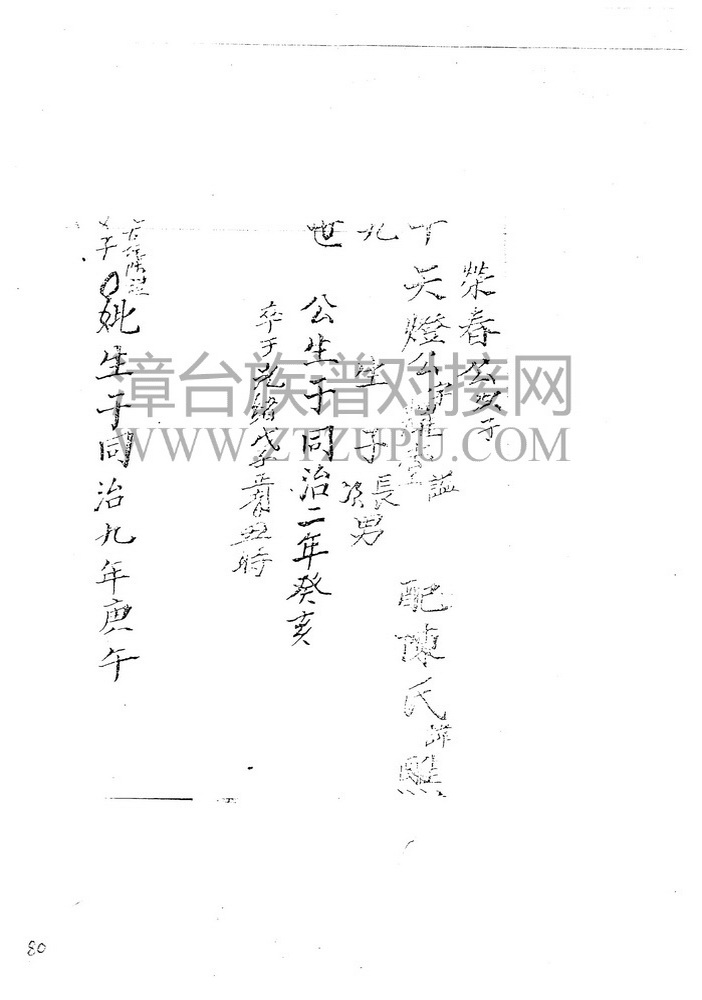 十九世
榮春公次子
天燈公字
諡
配陳氏諱
生子長男
次
公生于同治二年癸亥
卒于光緒戊子
丑時
妣生于同治九年庚午
漳台族谱对接网
WWW.ZTZUPU.COM
80